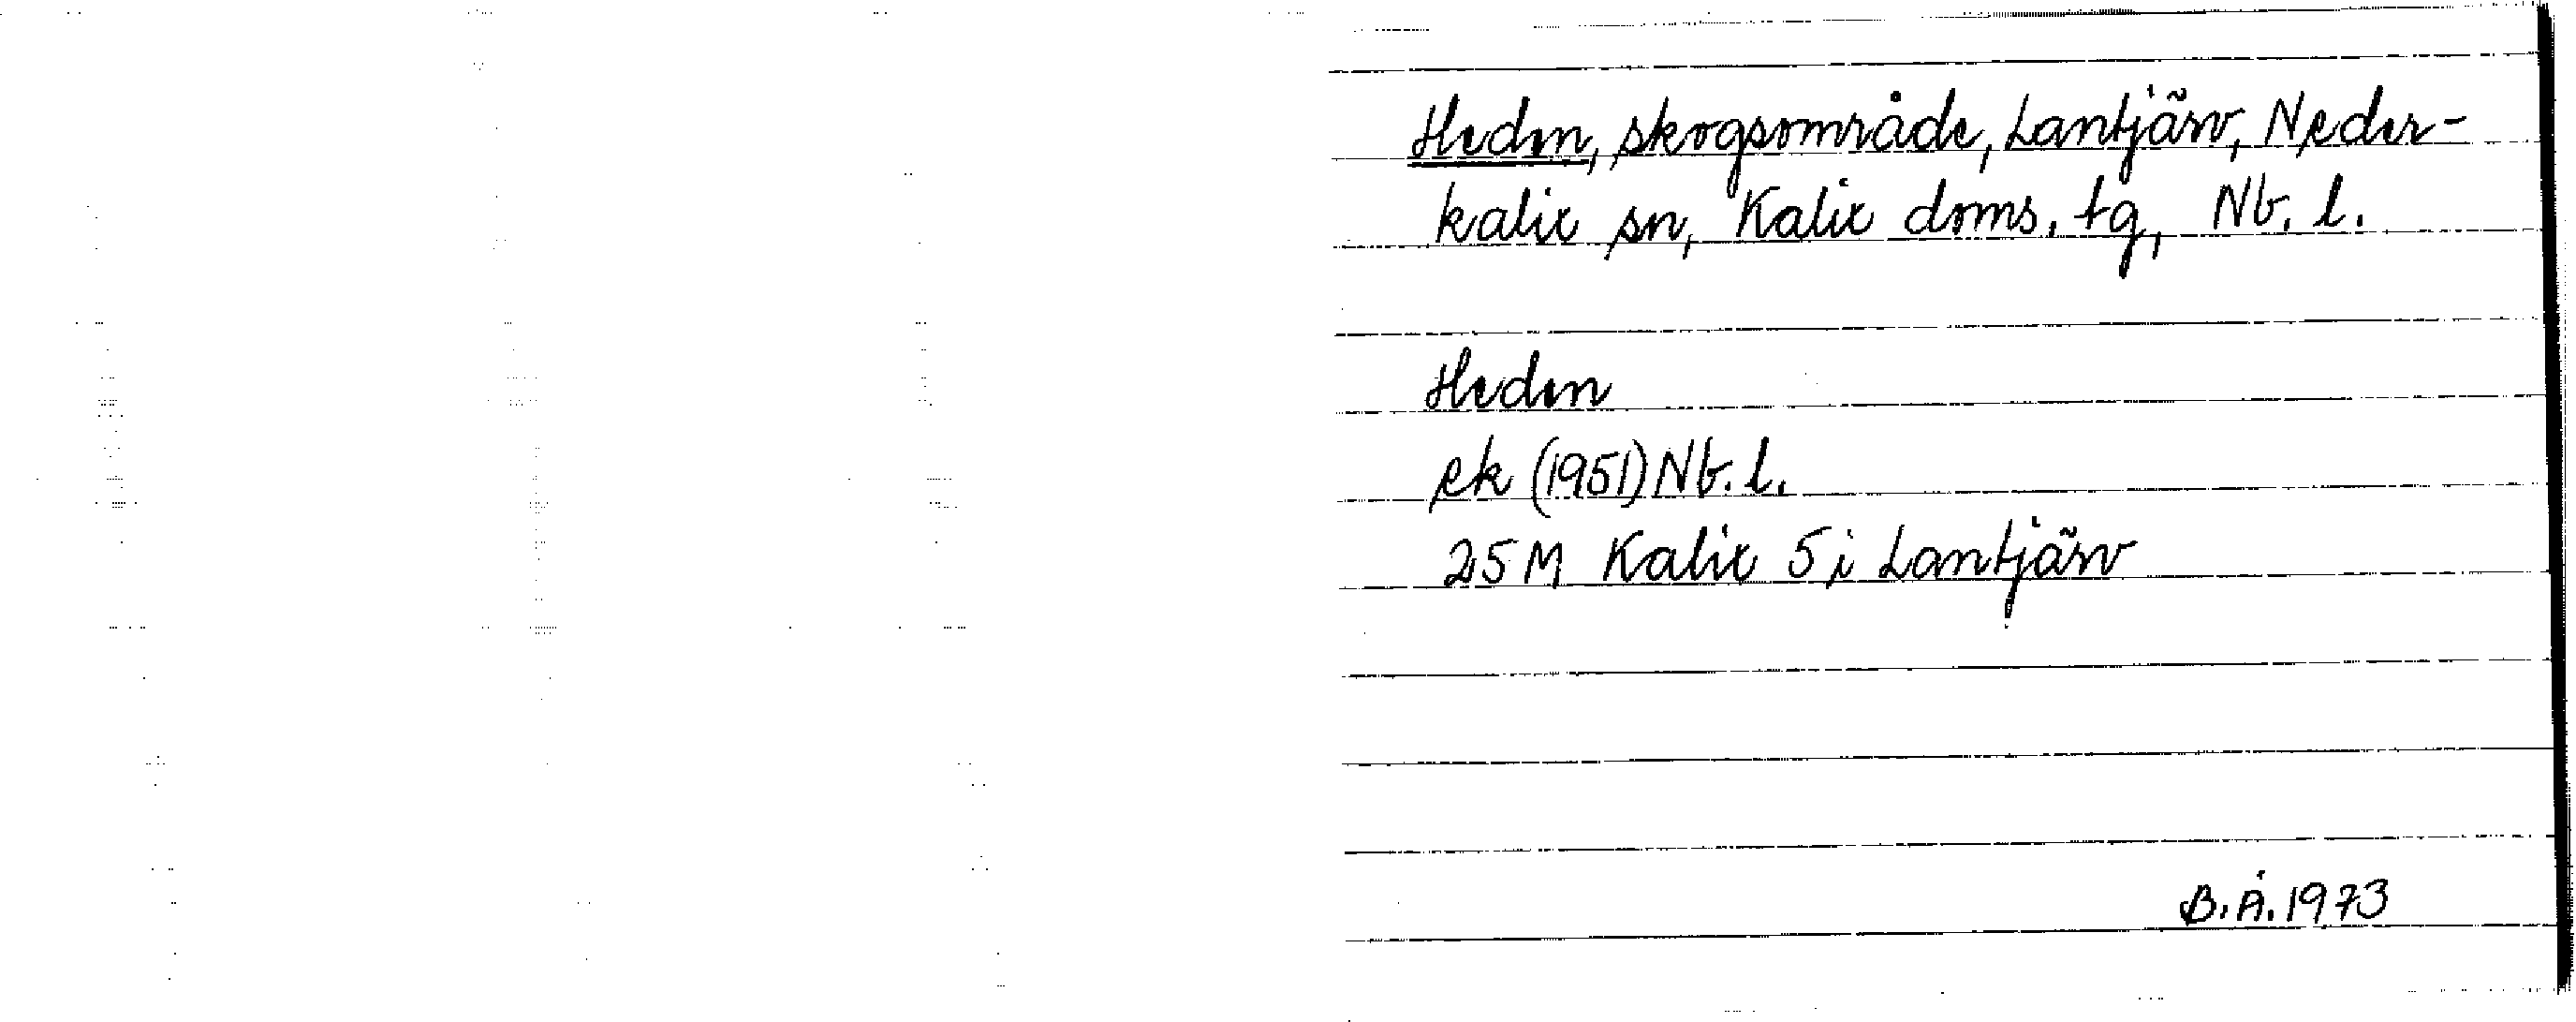 Heden, skogsområde, Lantjärv, Neder-
kalix sn, Kalix doms. tg, Nb. l.
Heden
ek (1951) Nb. l.
25M Kalix 5i Lantjärv
B.Å. 1973